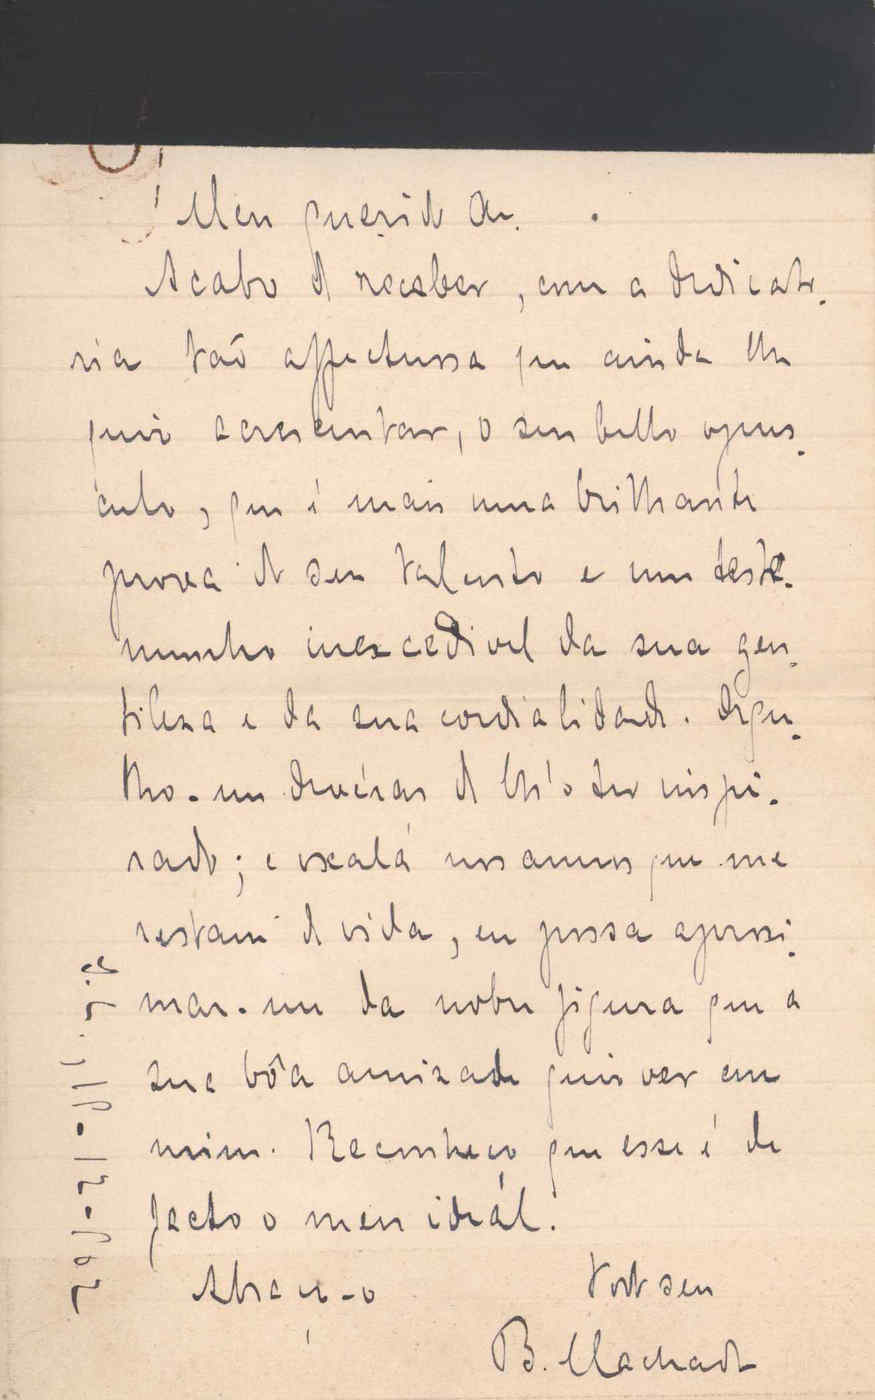 Meu querido Am.
Acabo de receber, com a dedicato-
ria tão affectuosa que ainda lhe
quiz acrescentar, o seu bello opus-
culo, que é mais uma brilhante
prova do seu talento e um teste-
munho inexcedivel da sua gen-
tileza e da sua cordialidade. Orgu-
lho-me devéras de lh'o ter inspi-
rado; e oxalá nos annos que me
restam de vida, eu possa aproxi-
mar-me da nobre figura que a
sua bôa amizade quiz ver em
mim. Reconheço que esse é de
facto o meu ideál.
Abraça-o
todo seu
B. Machado